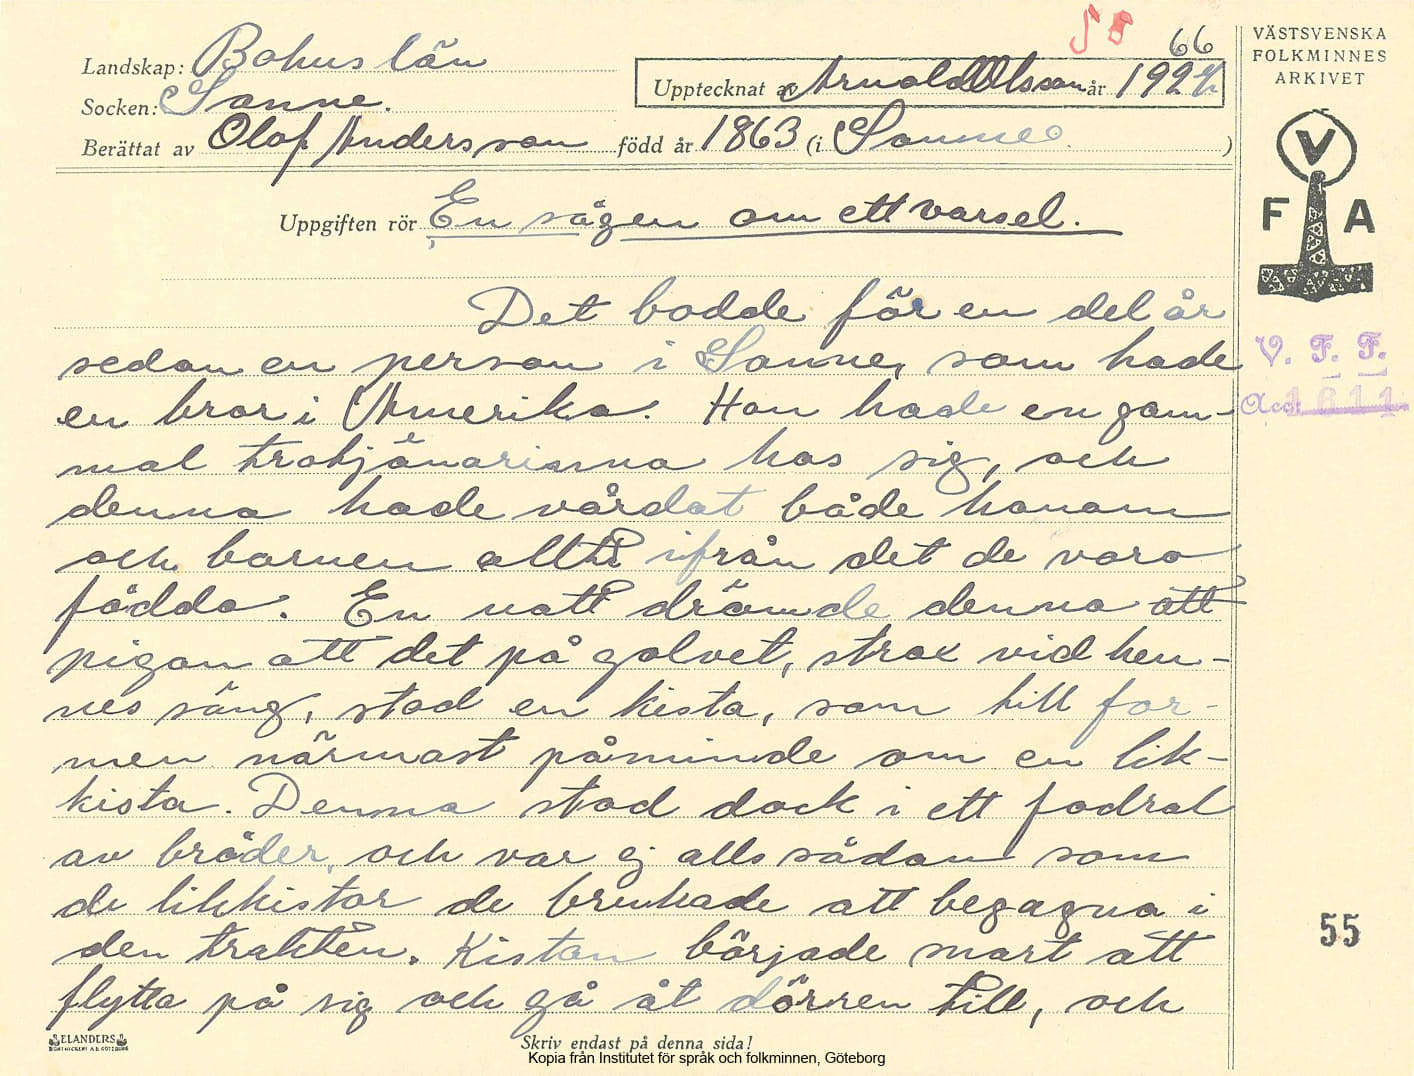 58
66
Landskap: Bohuslän
Upptecknat av Arnold Olsson år 1924
Socken: Sanne.
Berättat av Olof Andersson född år 1863 (i Sanne.)
Uppgiften rör En sägen om ett varsel.
Det bodde för en del år
sedan en person i Sanne, som hade
en bror i Amerika. Han hade en gam-
mal trotjänarinna hos sig, och
denna hade vårdat både honom
och barnen allt ifrån det de voro
födda. En natt drömde denna att
pigan att det på golvet, strax vid hen-
nes säng, stod en kista, som till for-
men närmast påminde om en lik-
kista. Denna stod dock i ett fodral
av bräder, och var ej alls sådan som
de likkistor de brukade att begagna i
den trakten. Kistan började snart att
flytta på sig och gå åt dörren till, och
ELANDERS
BOKTRYCKERI A.B. GÖTEBORG
Skriv endast på denna sida!
Kopia från Institutet för språk och folkminnen, Göteborg
VÄSTSVENSKA
FOLKMINNES
ARKIVET
V
F A
V. F. F.
Acc: 1611
55